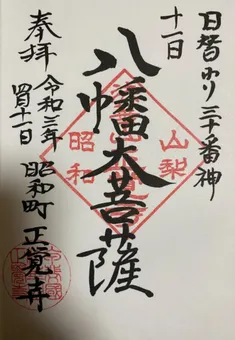 日替わり三十番神
十一日
八幡大菩薩
山梨
昭和
奉拝 令和三年
四月十一日
昭和町 正覚寺